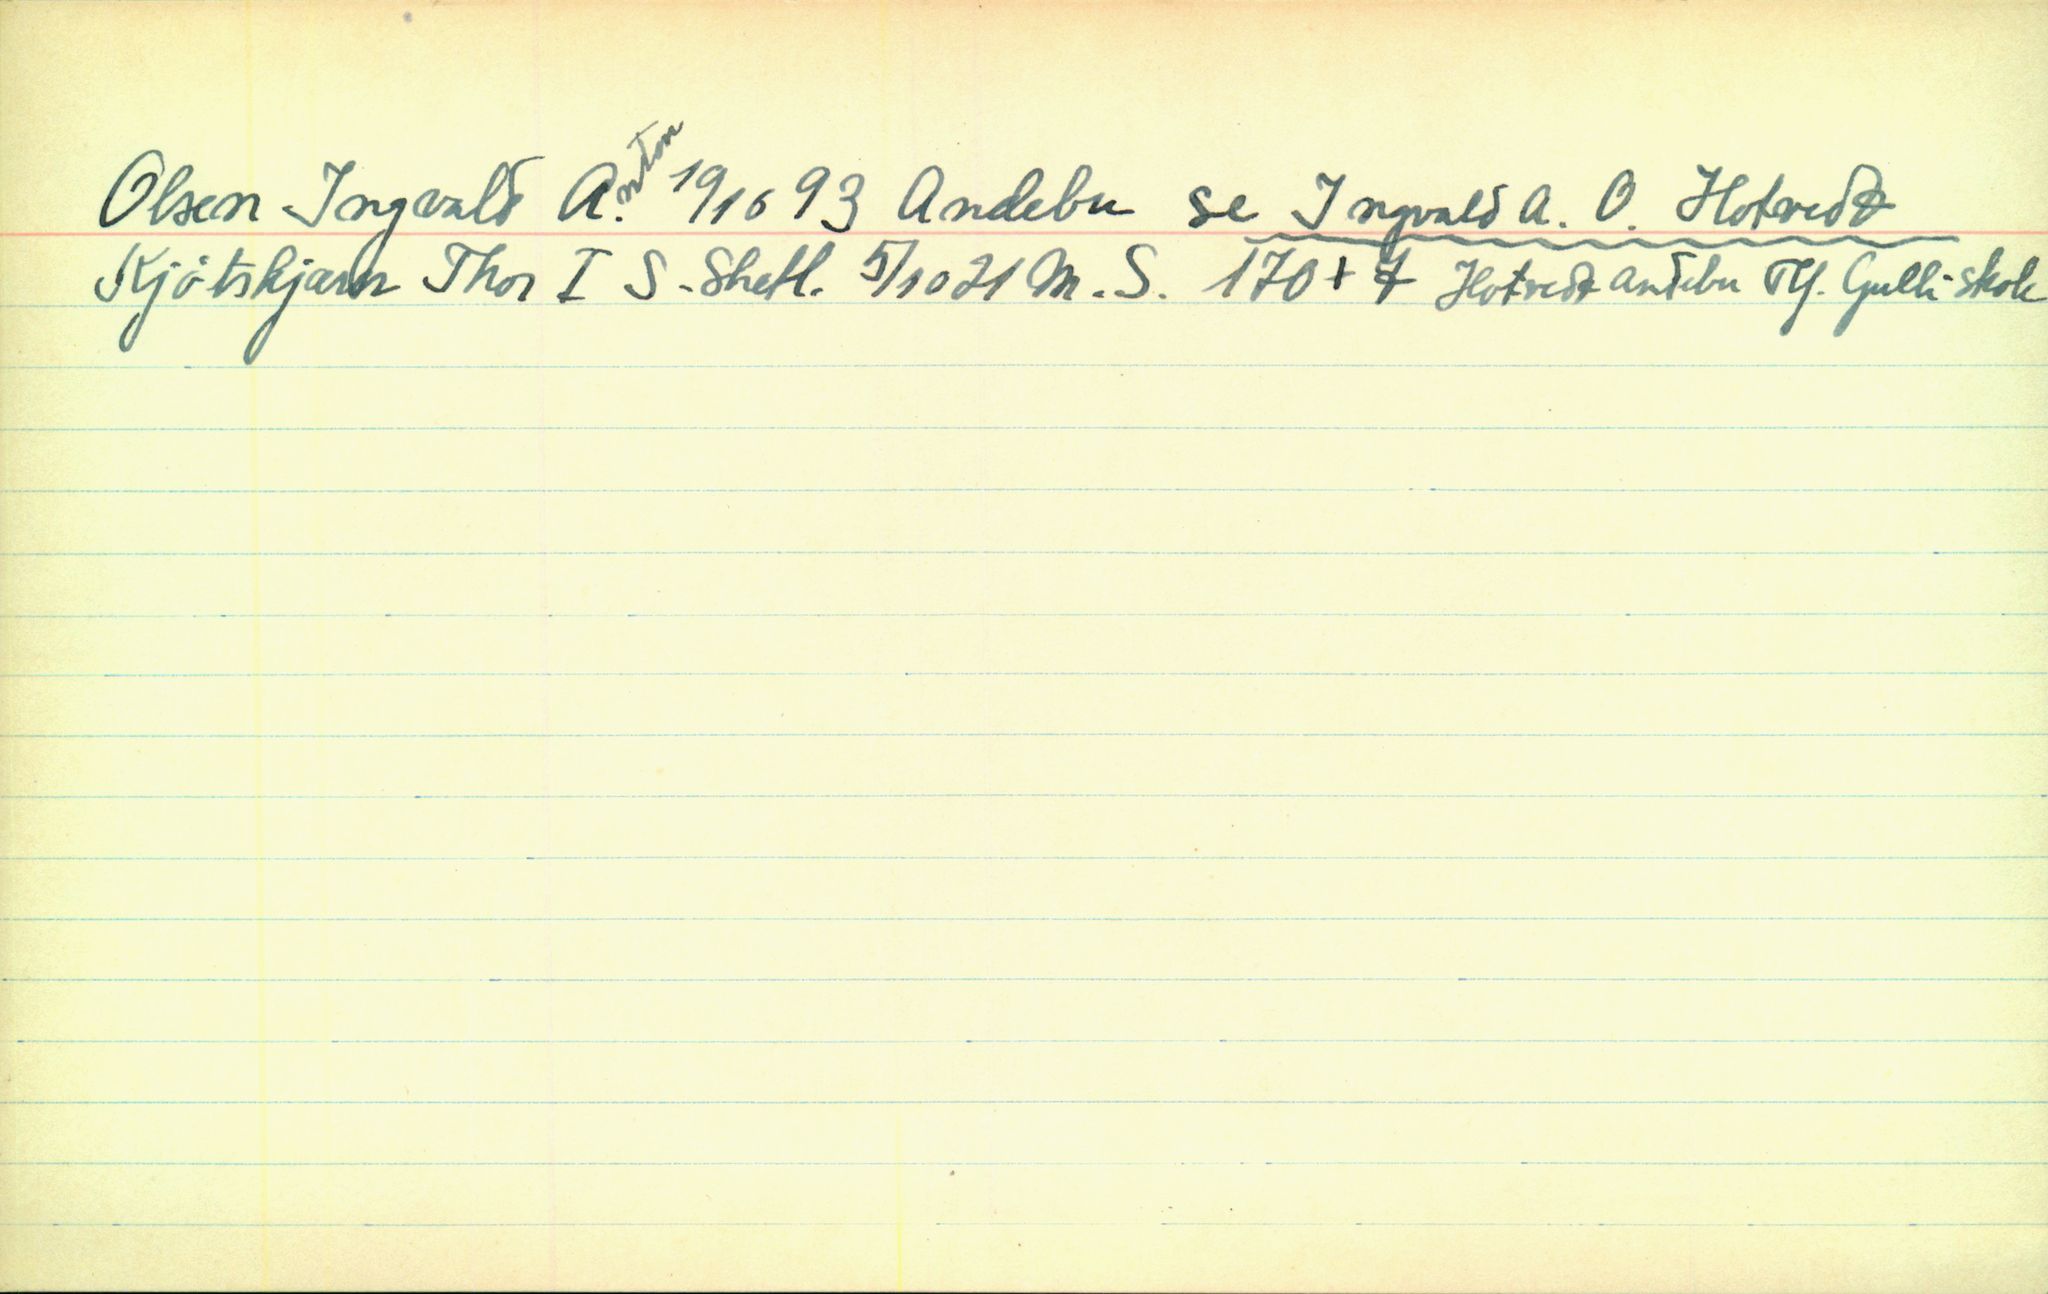 Olsen Ingvald A.nton 19/10 93 Andebu se Ingvald A. O. Hotvedt
Kjøtskjærer Thor I S. Shetl. 5/10 21 M.S. 170 + 7 Hotvedt Andebu Tlf. Gulli skole